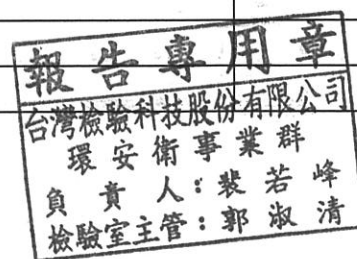 報告專用章
台灣檢驗科技股份有限公司
環安衛事業群
負責人:裴若峰
檢驗室主管:郭淑清